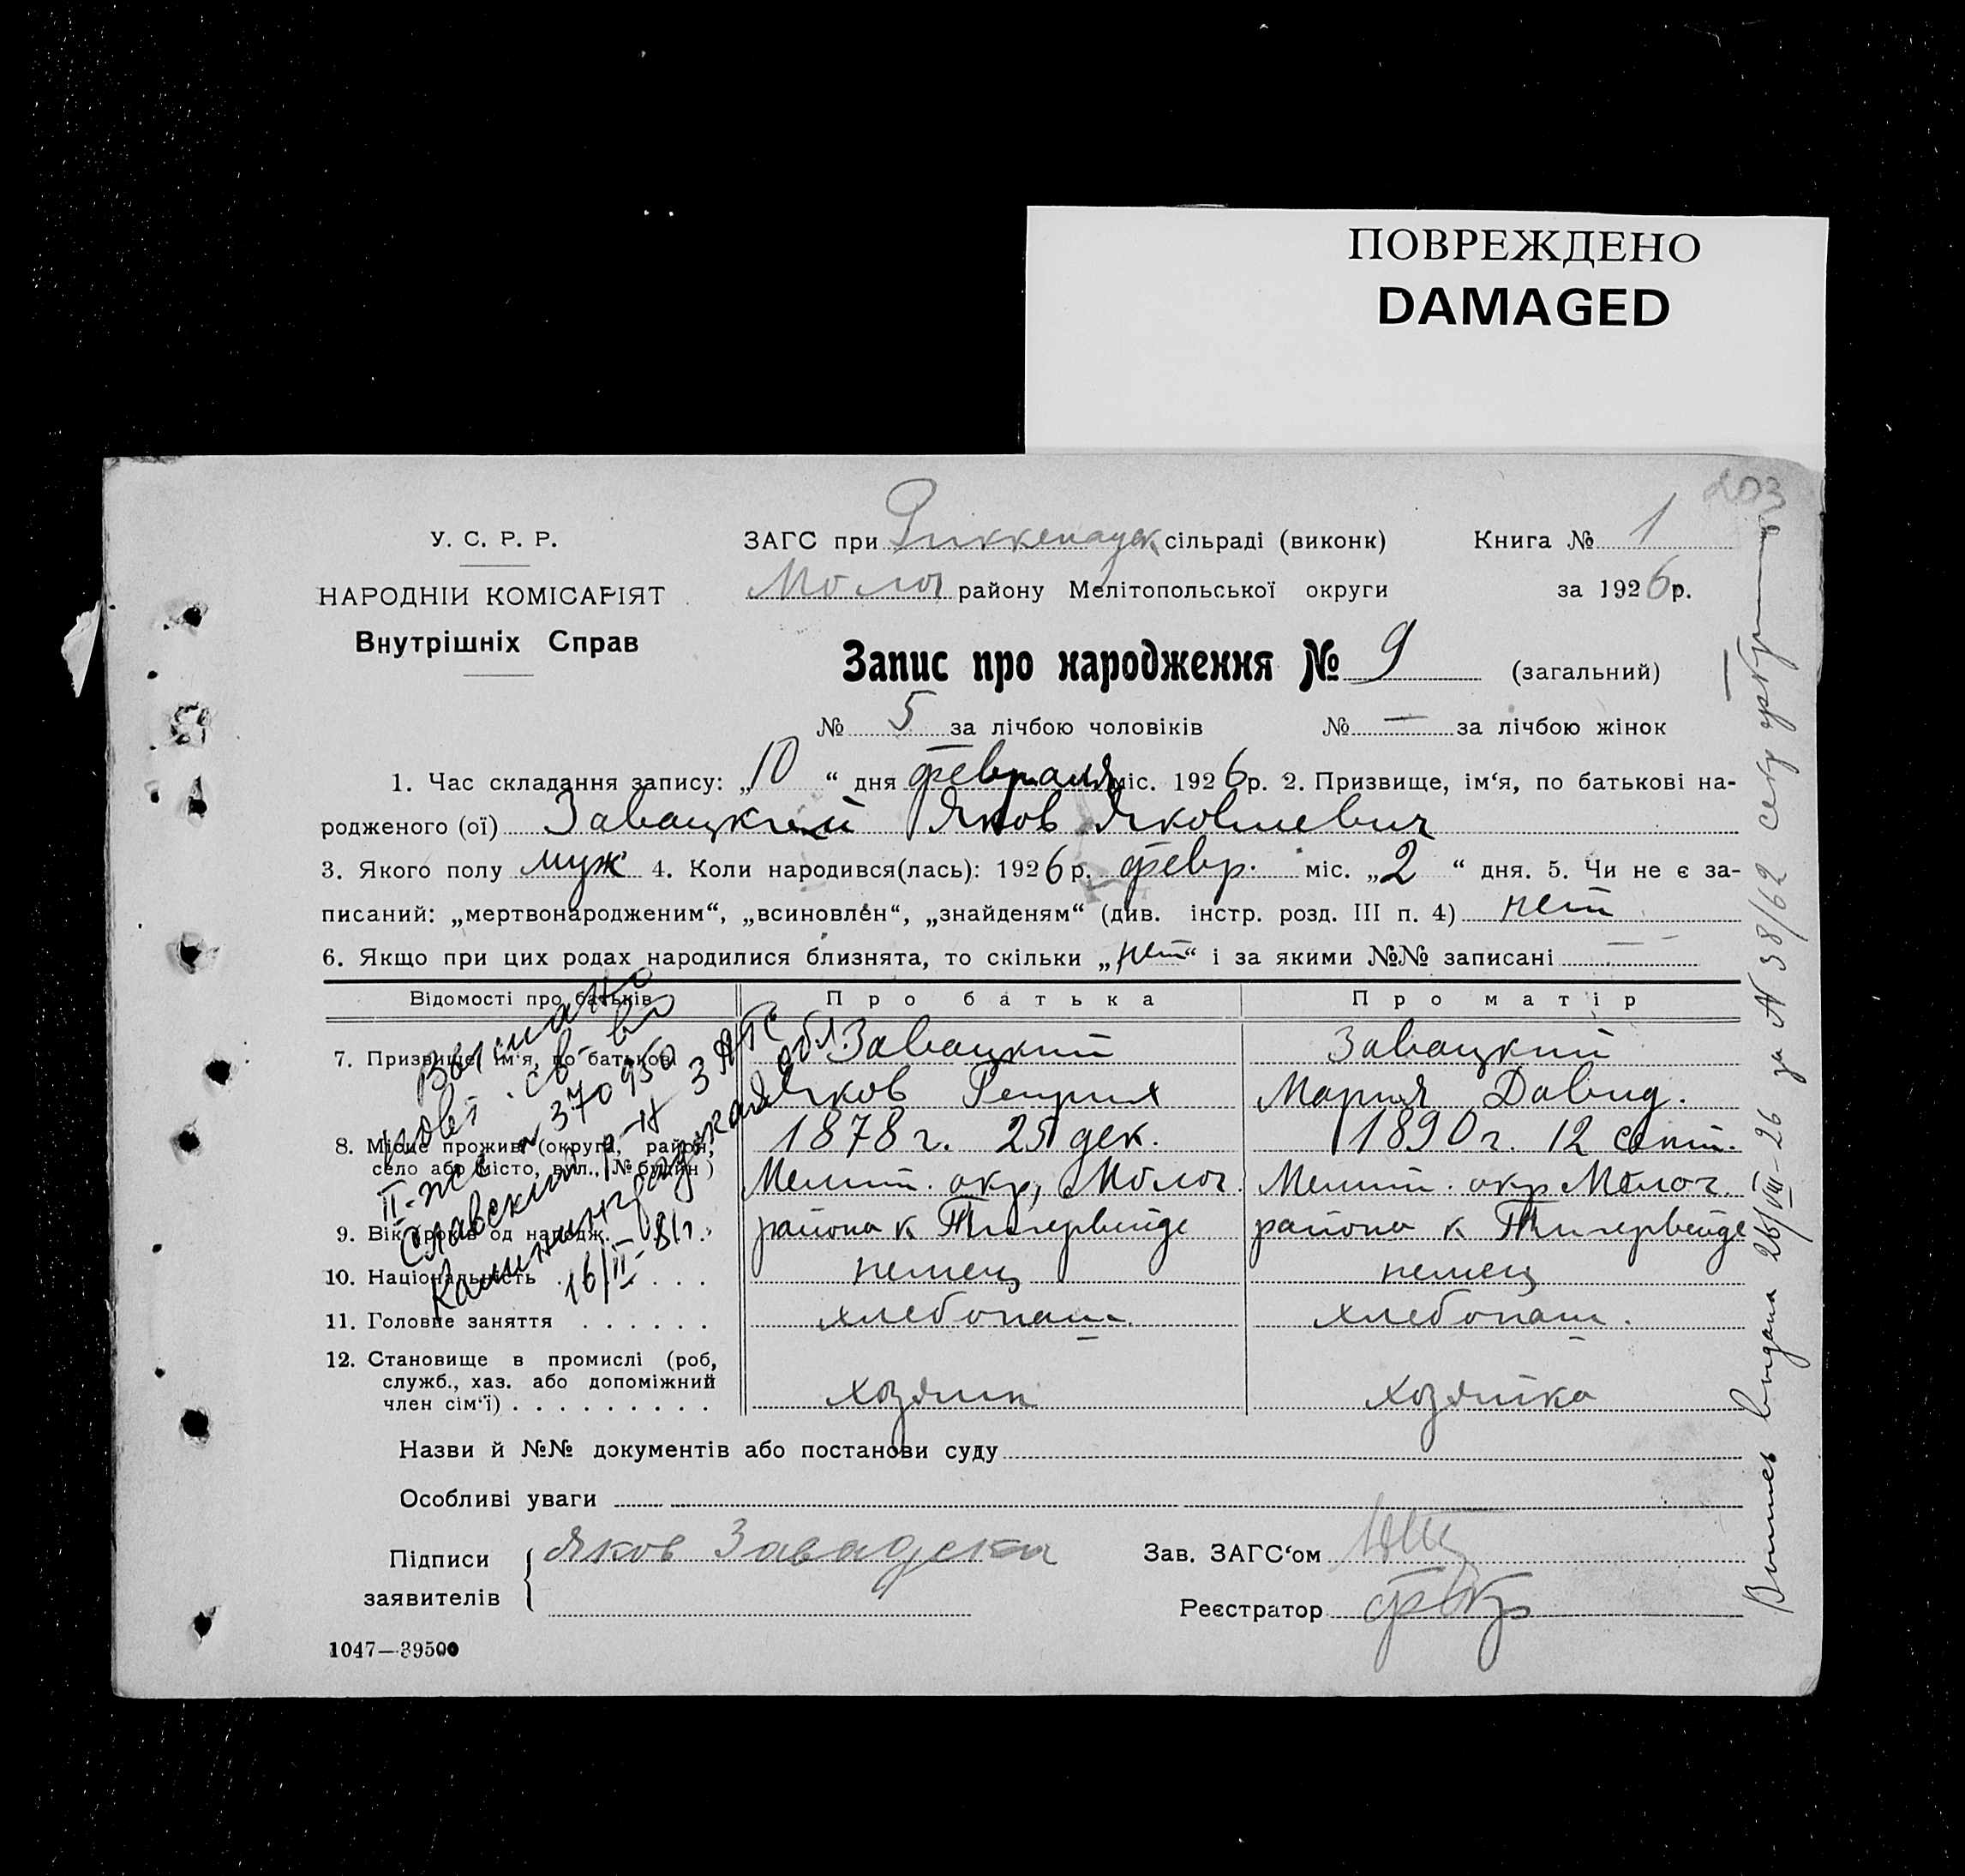 ПОВРЕЖДЕНО
DAMAGED
203
У. С. Р. Р.
НАРОДНІЙ КОМІСАРІЯТ
Внутрішніх Справ
ЗАГС при Риккенауск сільраді (виконк) Книга № 1
Молоч району Мелітопольської округи за 1926 р.
Запис про народження № 9 (загальний)
№ 5 за лічбою чоловіків № — за лічбою жінок
1. Час складання запису: „10“ дня февраля міс. 1926 р. 2. Призвище, ім‘я, по батькові на-
родженого (ої) Завацкий Яков Яковлевич
3. Якого полу муж 4. Коли народився(лась): 1926 р. февр. міс. „2“ дня. 5. Чи не є за-
писаний: „мертвонародженим“, „всиновлен“, „знайденям“ (див. інстр. розд. III п. 4) нет
6. Якщо при цих родах народилися близнята, то скільки „нет“ і за якими №№ записані — —
Відомості про батьків Про батька Про матір
7. Призвище, ім‘я, по батькові Завацкий Завацкий
Яков Генрих Мария Давид.
8. Місце прожив. (округа, район, 1878 г. 25 дек. 1890 г. 12 сент.
село або місто, вул., № будин) Мелит. окр, Молоч. Мелит. окр Молоч.
9. Вік, років од народж. района к Тигервейде района к Тигервейде
10. Національність . . . . . немец немец
11. Головне заняття . . . . . . хлебопаш. хлебопаш.
12. Становище в промислі (роб,
служб., хаз. або допоміжний
член сім‘ї) . . . . . . . . . хозяин хозяйка
Выслано
повт. св-во
II-ЖС № 370950
Славский р-н ЗАГС
Калининградская обл.
16/II-81г.
Назви й №№ документів або постанови суду
Особливі уваги
Підписи заявителів Яков Завадски Зав. ЗАГС‘ом
Реєстратор
1047—39500
Выпись выдана 26/VIII-26 за № 38/62